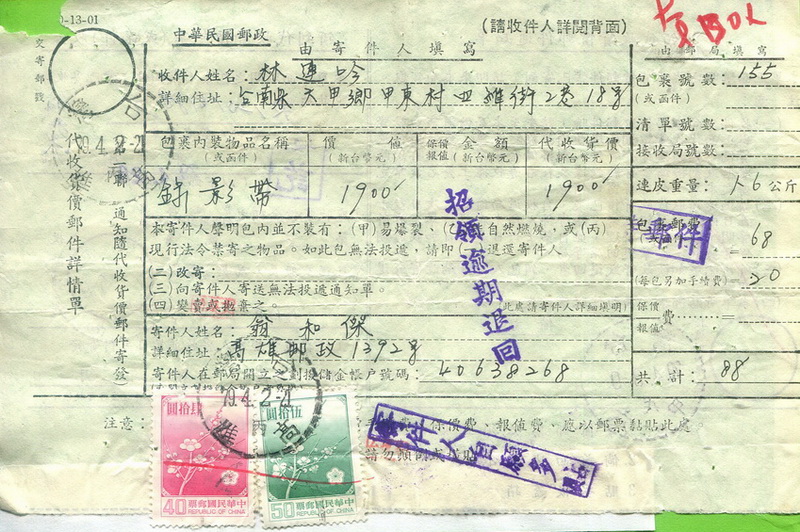 0-13-01
中華民國郵政
(請收件人詳閱背面)
由寄件人填寫
由郵局填寫
交寄郵戳
收件人姓名：林連吟
詳細住址：台南縣六甲鄉甲東村四維街2巷18号
包裹號數：155
(或函件)
清單號數：
接收局號數：
代收貨價郵件詳情單
第一聯 通知隨代收貨價郵件寄發
包裹內裝物品名稱
(或函件)
價值
(新台幣元)
保價報值 金額
(新台幣元)
代收貨價
(新台幣元)
錄影帶
1900
1900
連皮重量：1.6公斤
本寄件人聲明包內並不裝有：(甲)易爆裂、(乙)自然燃燒，或(丙)
現行法令禁寄之物品。如此包無法投遞，請即(一)退還寄件人
(二)改寄：
(三)向寄件人寄送無法投遞通知單。
(四)變賣或拋棄之。
(此處請寄件人詳細填明)
招領逾期退回
包裹郵費
(或函件)
= 68
(每包另加手續費) = 20
保價報值 費 =
寄件人姓名：翁和傑
詳細住址：高雄郵政1392号
寄件人在郵局開立之劃撥儲金帳户號碼：40638268
共計：88
注意：
保價費、報值費、應以郵票黏貼此處。
寄件人自願多貼
台
79.4.2-2
79.4.2-2
丙
高雄
圓拾肆
40
中華民國郵票
REPUBLIC OF CHINA
圓拾伍
50
中華民國郵票
REPUBLIC OF CHINA